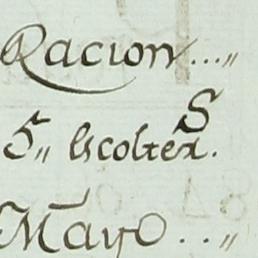 Racion...„
S
5„ Escoltes.
Mayo..„